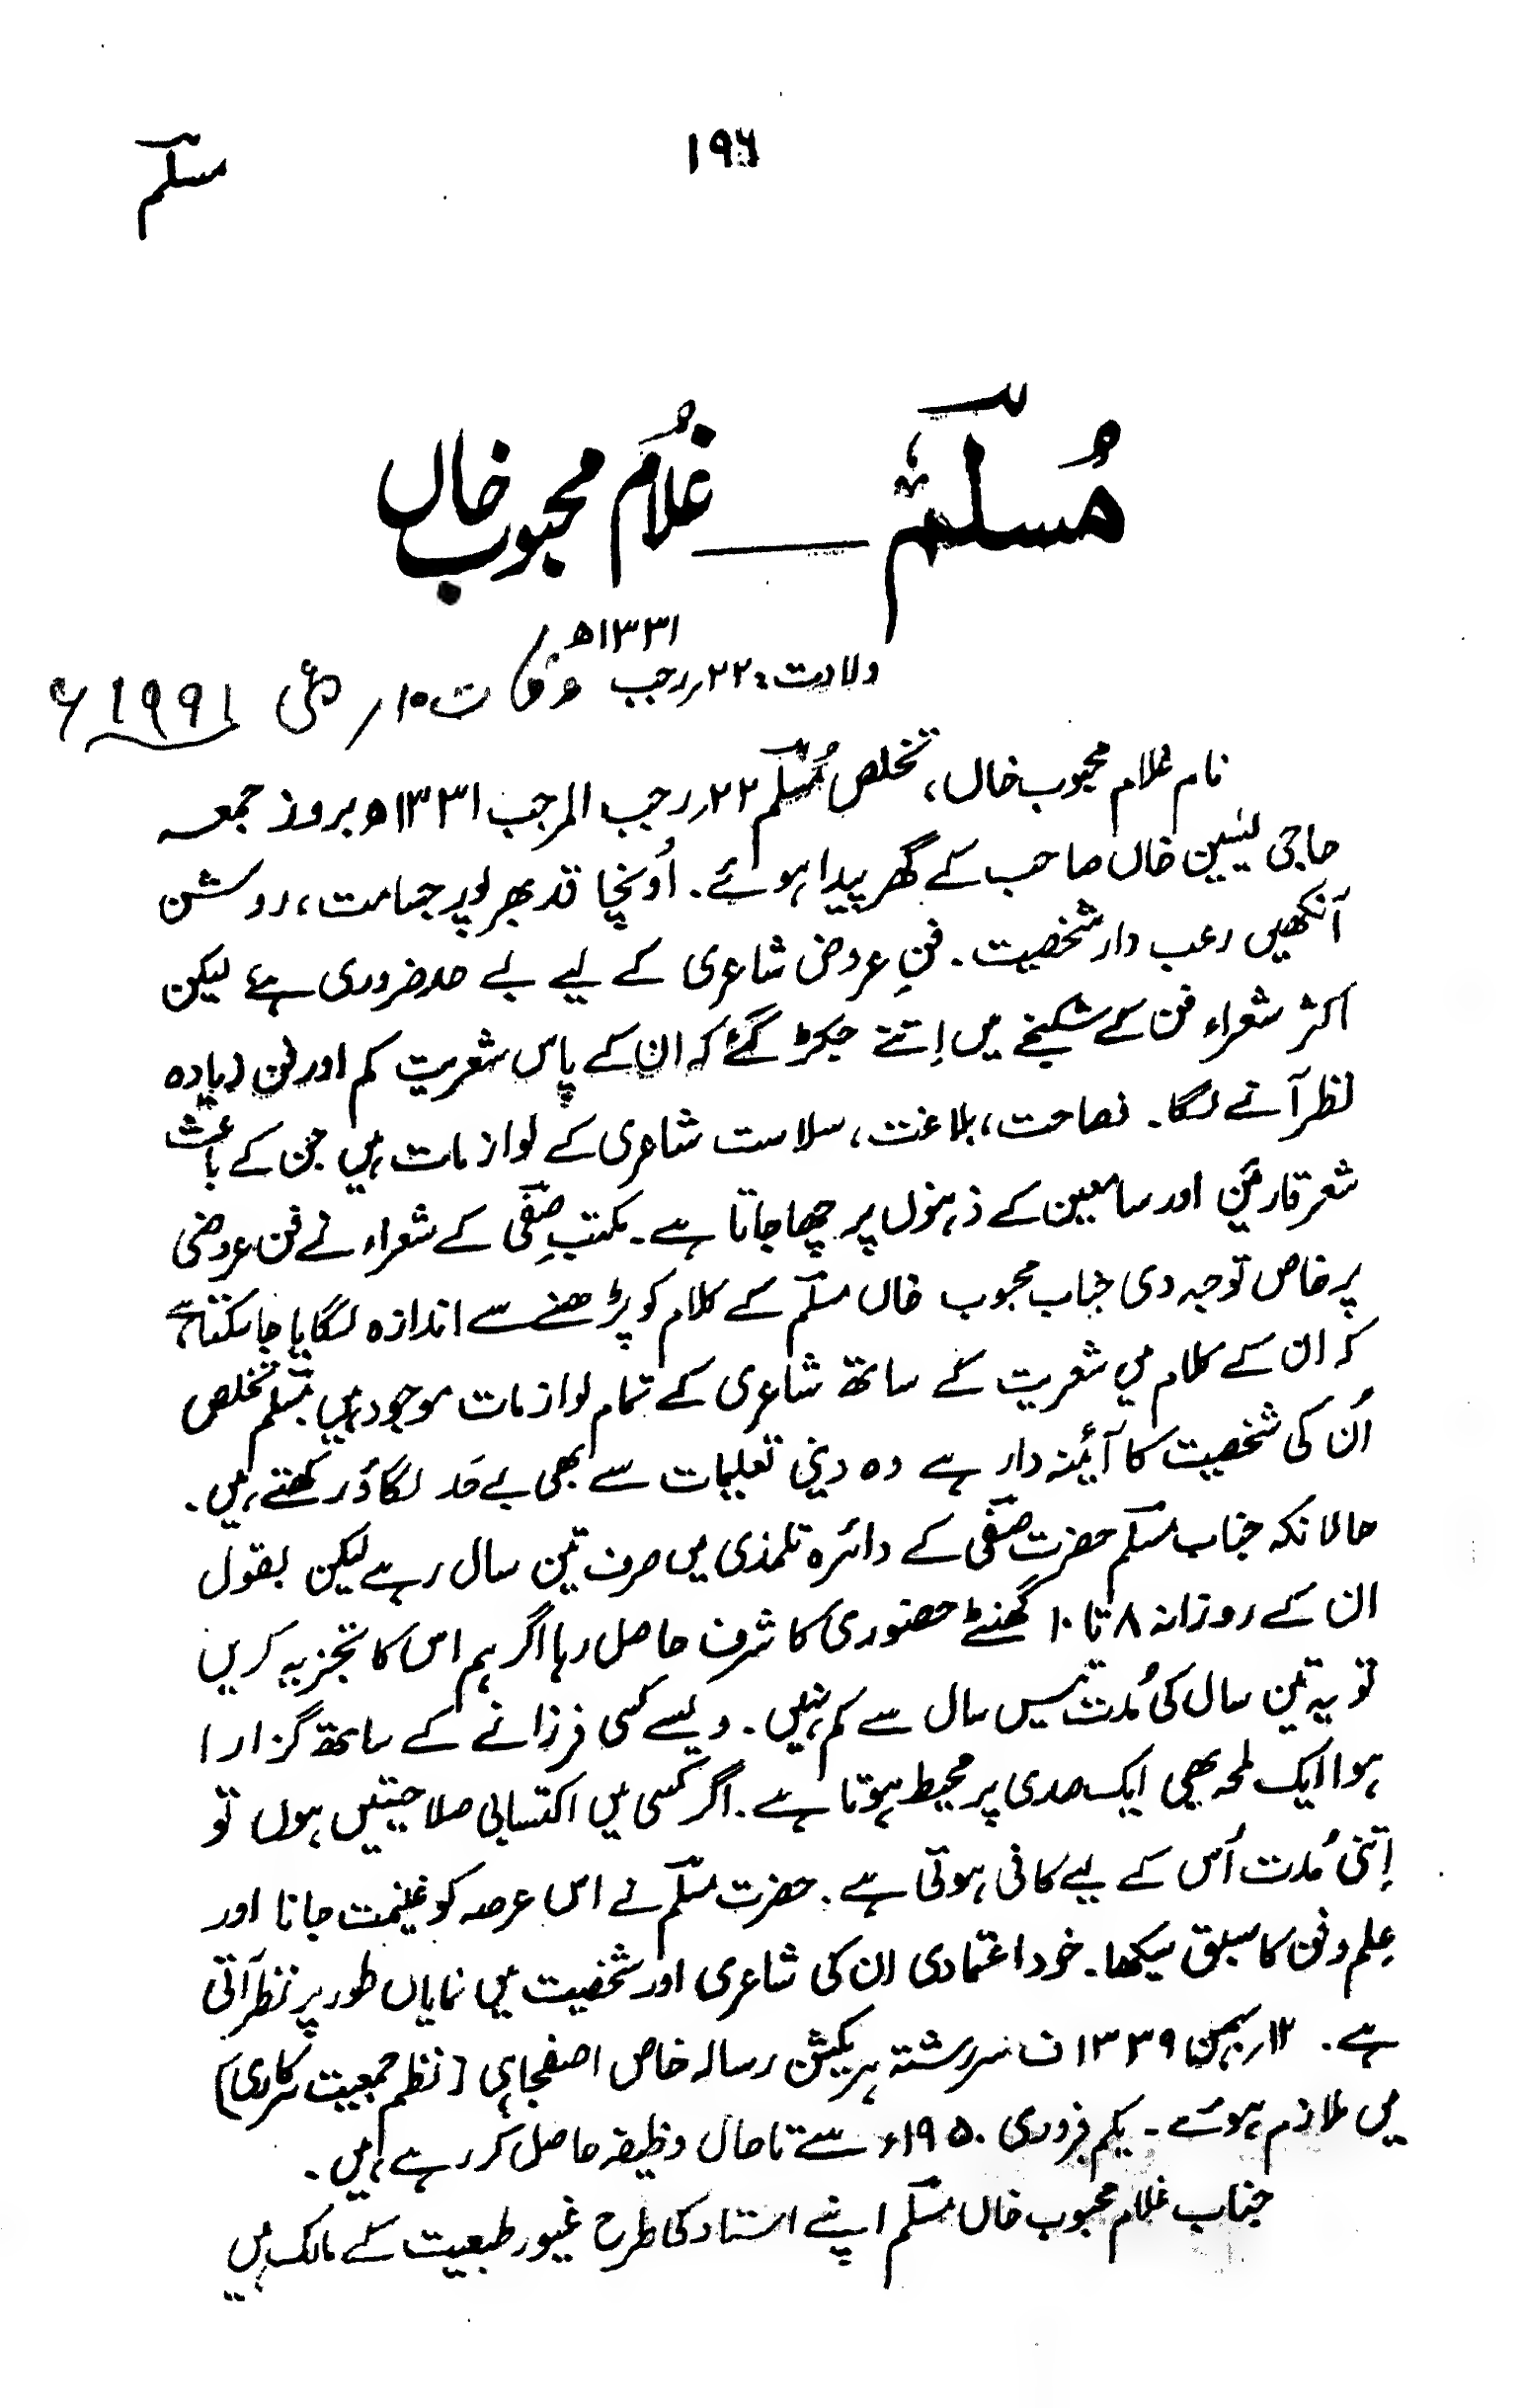 ۱۹۶
مسلّم
مُسلّم — غلام محبوب خاں
ولادت: ۲۲؍رجب ۱۳۳۱ھ / وفات ۱۰؍ مئی ۱۹۹۱ء
نام غلام محبوب خاں، تخلص مُسلّم ۲۲؍رجب المرجب ۱۳۳۱ھ بروز جمعہ
حاجی یٰسین خاں صاحب کے گھر پیدا ہوئے۔ اُونچا قد بھرپور جسامت، روشن
آنکھیں رعب دار شخصیت۔ فنِ عروض شاعری کے لیے بے حد ضروری ہے لیکن
اکثر شعراء فن کے شکنجے میں اِتنے جکڑ گئے کہ ان کے پاس شعریت کم اور فن زیادہ
نظر آنے لگا۔ فصاحت، بلاغت، سلاست شاعری کے لوازمات ہیں جن کے باعث
شعر قارئین اور سامعین کے ذہنوں پر چھا جاتا ہے۔ مکتبِ صفیؔ کے شعراء نے فن عروض
پر خاص توجہ دی جناب محبوب خاں مسلّم کے کلام کو پڑھنے سے اندازہ لگایا جا سکتا ہے
کہ ان کے کلام میں شعریت کے ساتھ شاعری کے تمام لوازمات موجود ہیں۔ مسلّم تخلص
اُن کی شخصیت کا آئینہ دار ہے وہ دینی تعلیمات سے بھی بے حَد لگاؤ رکھتے ہیں۔
حالانکہ جناب مسلّم حضرت صفیؔ کے دائرہ تلمذی میں صرف تین سال رہے لیکن بقول
ان کے روزانہ ۸ تا ۱۰ گھنٹے حضوری کا شرف حاصل رہا اگر ہم اس کا تجزیہ کریں
تو یہ تین سال کی مُدت تیس سال سے کم نہیں۔ ویسے کسی فرزانے کے ساتھ گزارا
ہوا ایک لمحہ بھی ایک صدی پر محیط ہوتا ہے۔ اگر کسی میں اکتسابی صلاحیتیں ہوں تو
اِتنی مُدت اُس کے لیے کافی ہوتی ہے۔ حضرت مسلّم نے اس عرصہ کو غنیمت جانا اور
عِلم و فن کا سبق سیکھا۔ خود اعتمادی ان کی شاعری اور شخصیت میں نمایاں طور پر نظر آتی
ہے۔ ۱۲؍بہمن ۱۳۳۹ ف سررشتہ ہریکشن رسالہ خاص اصفجاہی [نظم جمعیت سرکاری)
میں ملازم ہوئے۔ یکم فروری ۱۹۵۰ء سے تا حال وظیفہ حاصل کر رہے ہیں۔
جناب غلام محبوب خاں مسلّم اپنے استاد کی طرح غیور طبعیت کے مالک ہیں